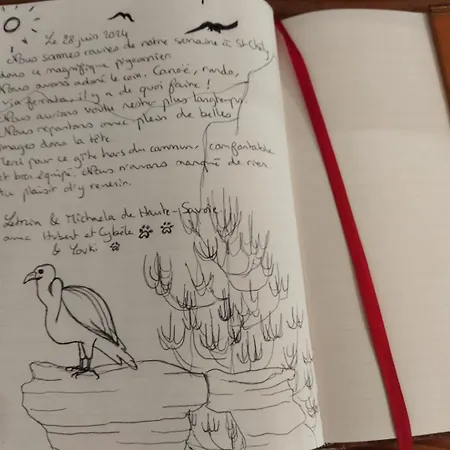 Le 28 juin 2024
Nous sommes ravies de notre semaine à St-Chély
dans ce magnifique pigeonnier.
Nous avons adoré le coin. Canoë, rando,
via ferrata, il y a de quoi faire !
Nous aurions voulu rester plus longtemps.
Nous repartons avec plein de belles
images dans la tête.
Merci pour ce gîte hors du commun, confortable
et bien équipé. Nous n'avons manqué de rien.
Au plaisir d'y revenir.
& Michaela de Haute-Savoie
avec Hubert et Cybèle
& Youki